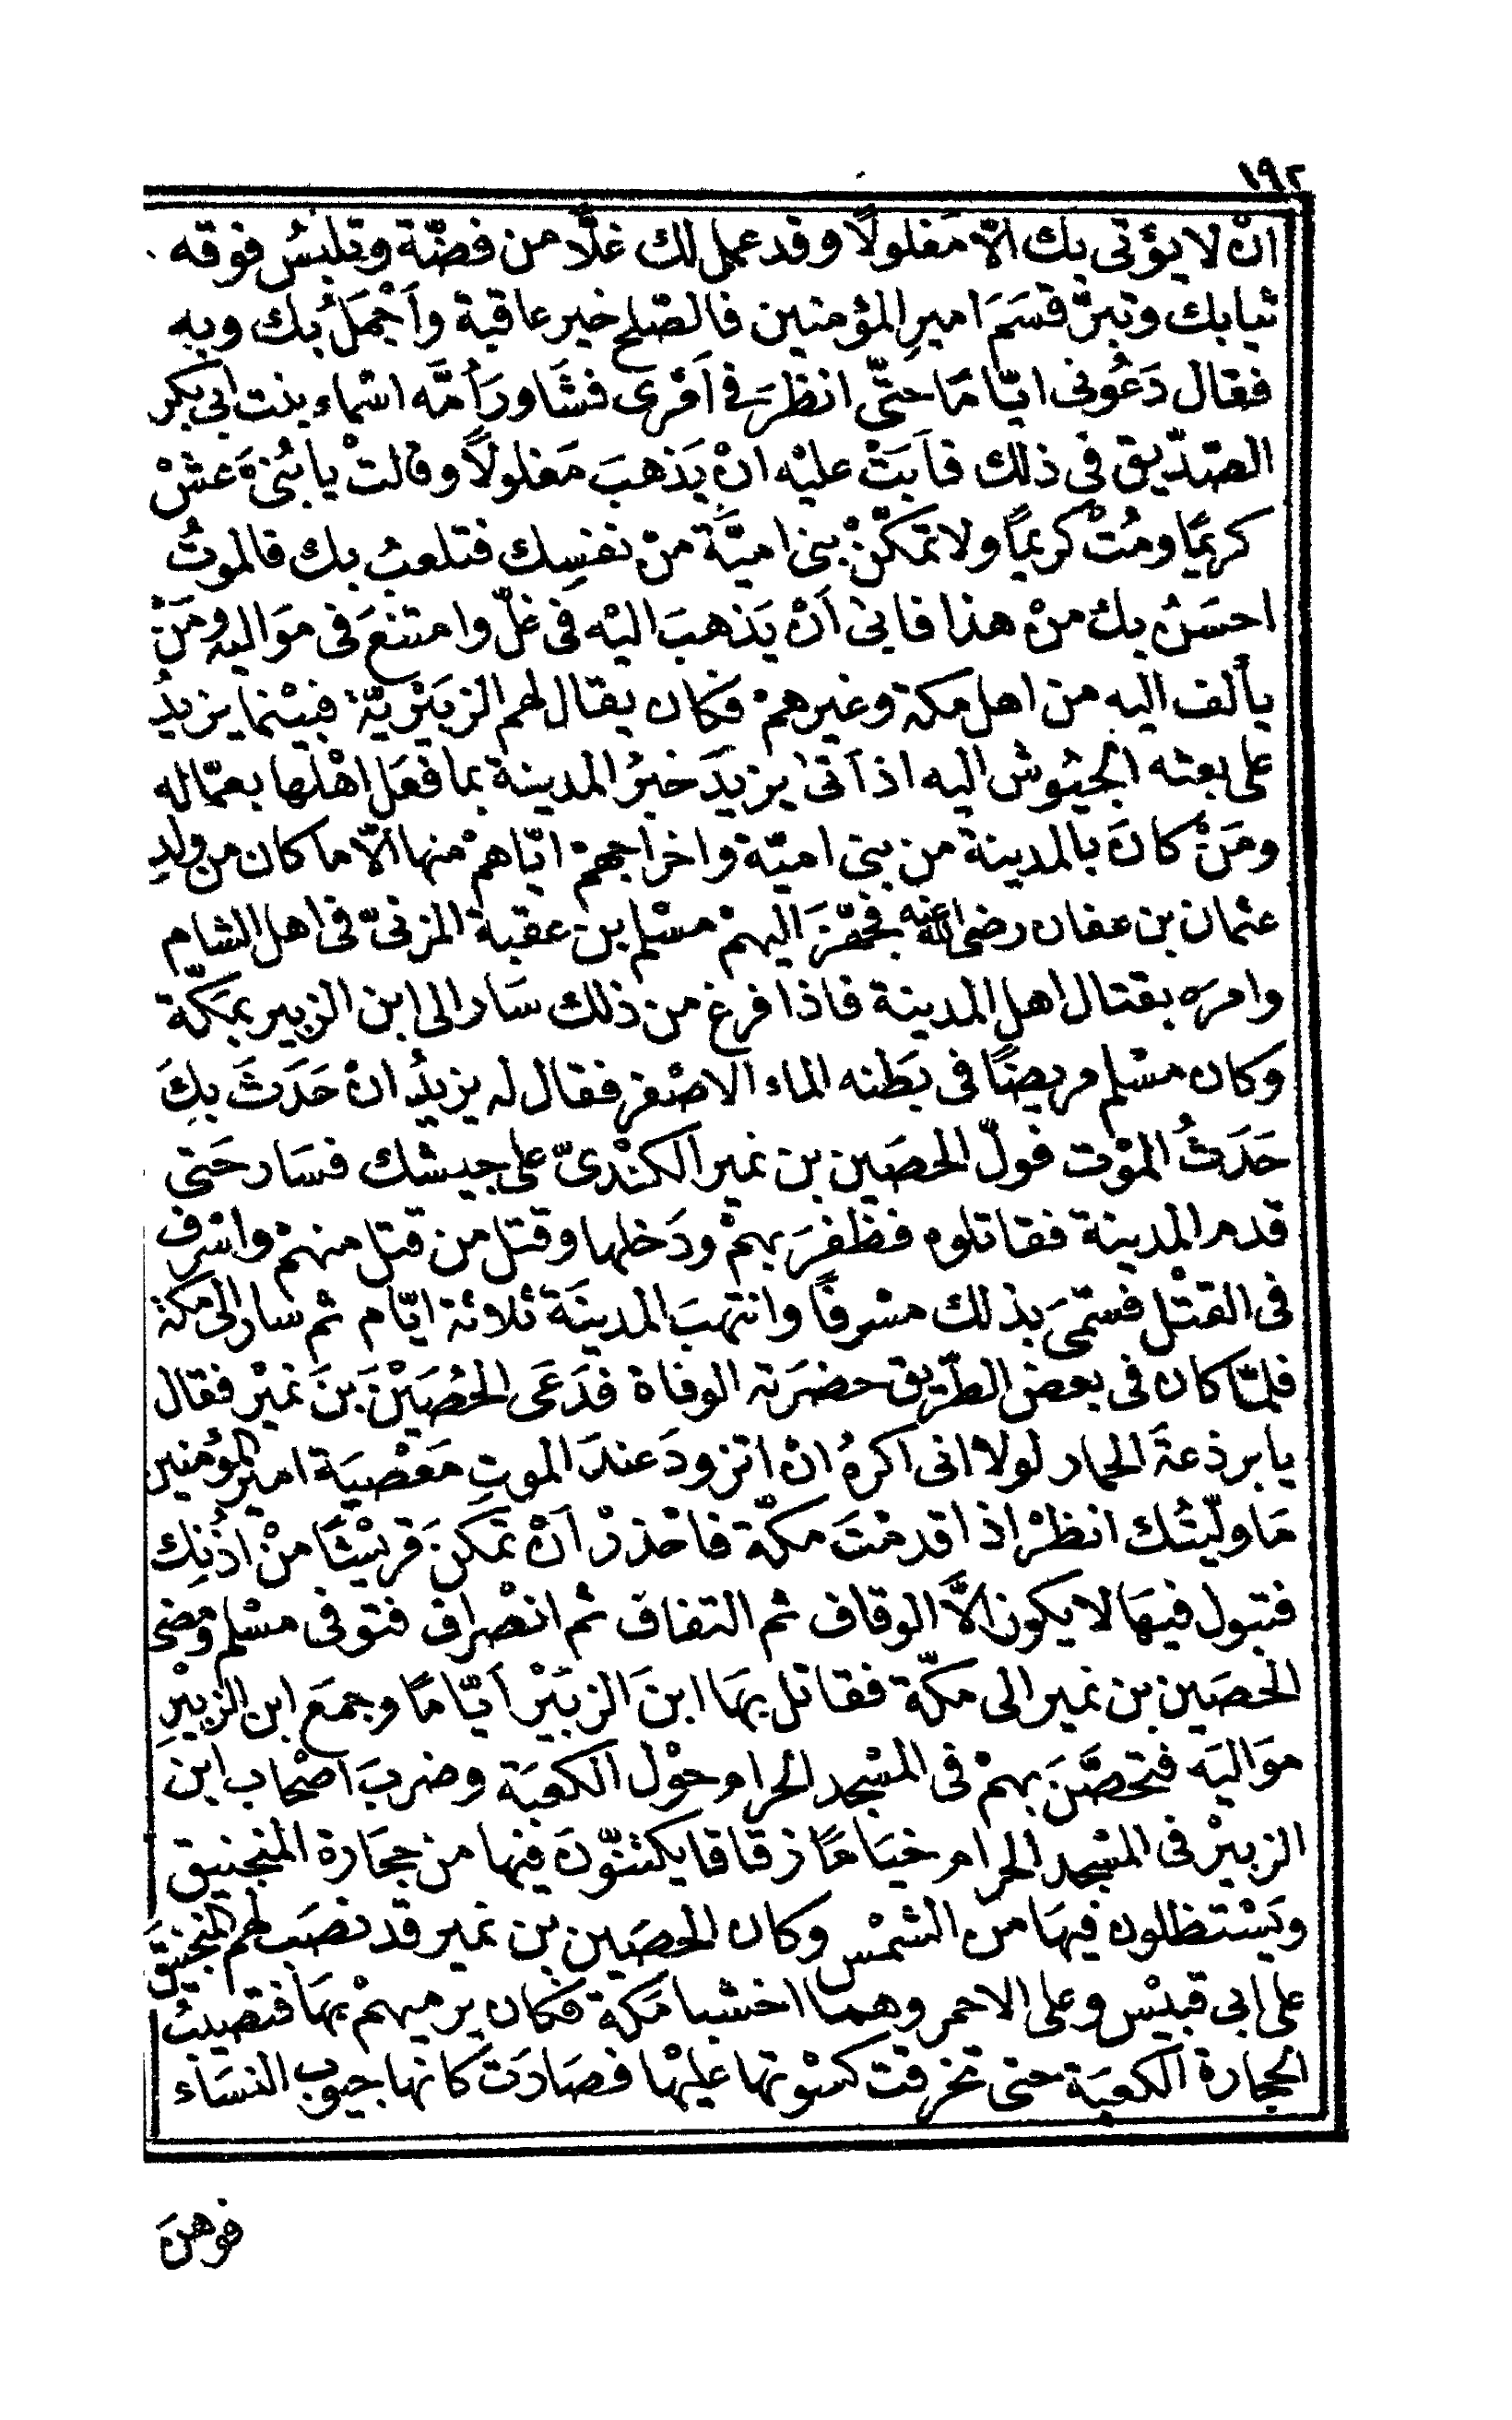 ١٩٢
ان لا يؤتى بك الّا مَغلولًا وقد عمل لك غلًّا من فضّة وتلبسُ فوقه
ثيابك وتبرّ قسَمَ اميرِ المؤمنين فالصّلح خير عاقبة وأجْمَلُ بك وبه
فقال دَعُونى ايّامًا حتّى انظرَ فى اَمْرى فشَاورَ أُمَّه اسْماء بنت ابى بكر
الصّدّيق فى ذلك فاَبَتْ عليْه انْ يَذهبَ مَغلولاً وقالتْ يا بُنىَّ عشْ
كريمًا ومُتْ كريمًا ولا تمكّنْ بنى اميَّة منْ نفسِك فتلعبُ بك فالموتُ
احسَنُ بك منْ هذا فابى اَنْ يَذهبَ اليْه فى غلّ وامتنعَ فى موَاليه ومَنْ
يألف اليه من اهل مكة وغيرهمْ فكان يقال لهم الزبَيْريّة فبيْنما يزيدُ
على بعثه الجيُوش اليه اذ اَتىٰ يزيدَ خبرُ المدينة بما فعَل اهْلها بعمّاله
ومَنْ كانَ بالمدينة من بنى اميّة واخراجهمْ ايّاهمْ منها الّا ما كان من ولدِ
عثمان بن عفان رضى الله عنه فجهّزَ اليهمْ مسْلم بن عقبة المزنىّ فى اهل الشام
وامره بقتال اهل المدينة فاذا فرغ من ذلك سَار الى ابن الزبير بمكّة
وكان مسْلم مريضًا فى بَطنه الماء الاصْفر فقال له يزيدُ انْ حَدَثَ بكَ
حَدَثُ الموْت فولّ الحصَين بن نمير الكنْدىّ على جيشك فسَار حَتى
قدم المدينة فقاتلوه فظفرَ بهمْ ودَخلها وقتل من قتل منهمْ واسْرف
فى القتْل فسمّىَ بذلك مسْرفًا وانتهبَ المدينَة ثلاثة ايّام ثم سار الى مكة
فلمّا كان فى بعض الطّريق حضرَته الوفاة فدَعَى الحُصَيْنَ بنَ نميْر فقال
يا برذعةَ الحمار لولا انى اكرهُ انْ اتزودَ عندَ الموتِ مَعْصيَة امير المؤمنين
مَا ولّيتُك انظرْ اذا قدمْتَ مكّة فاحْذرْ اَنْ تمكنَ قريْشًا منْ اذُنِك
فتبول فيهَا لا يكون الَّا الوقاف ثم التفاف ثم انْصراف فتوفى مسْلم ومضى
الحصَين بن نمير الى مكّة فقاتل بهَا ابنَ الزبَيْر اَيّامًا وجمعَ ابن الزبيْرِ
موَاليَه فتحصَّنَ بهمْ فى المسْجد الحرام حوْل الكعبَة وضربَ اصْحاب ابن
الزبيْر فى المسْجد الحرام خيَامًا زقاقا يكتنّونَ فيها من حجَارة المنجنيق
ويَسْتظلون فيهَا من الشمْس وكان الحصَين بن نمير قد نصَب لهم المنجنيقَ
على ابى قبيْس وعلى الاحمر وهما اخشبا مَكة فكان يرميهمْ بهَا فتصيبُ
الحجارة الكعبَة حتى تخرقت كسْوتها عليْها فصَارَتْ كانها جيوب النسَاء
فوهنَ